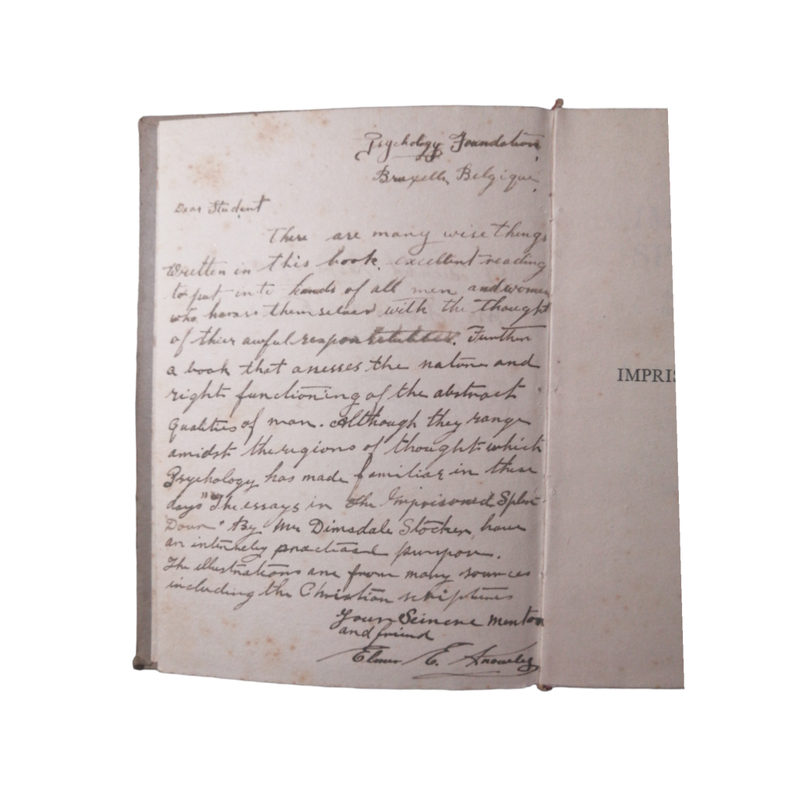 Psychology Foundation,
Bruxelles Belgique.
Dear Student
There are many wise things
written in this book, excellent reading
to put into hands of all men and women
who harass themselves with the thought
of thier awful responsibilities. Further
a book that assesses the nature and
right functioning of the abstract
qualities of man. Although they range
amidst the regions of thought which
Psychology has made familiar in these
days "The essays in The Imprisoned Splen-
Dour" By Mr Dimsdale Stocker, have
an intensely practical purpose.
The illustrations are from many sources
including the Christian scriptures
Your Sincere mentor
and friend
Elmer E. Knowles
IMPRIS